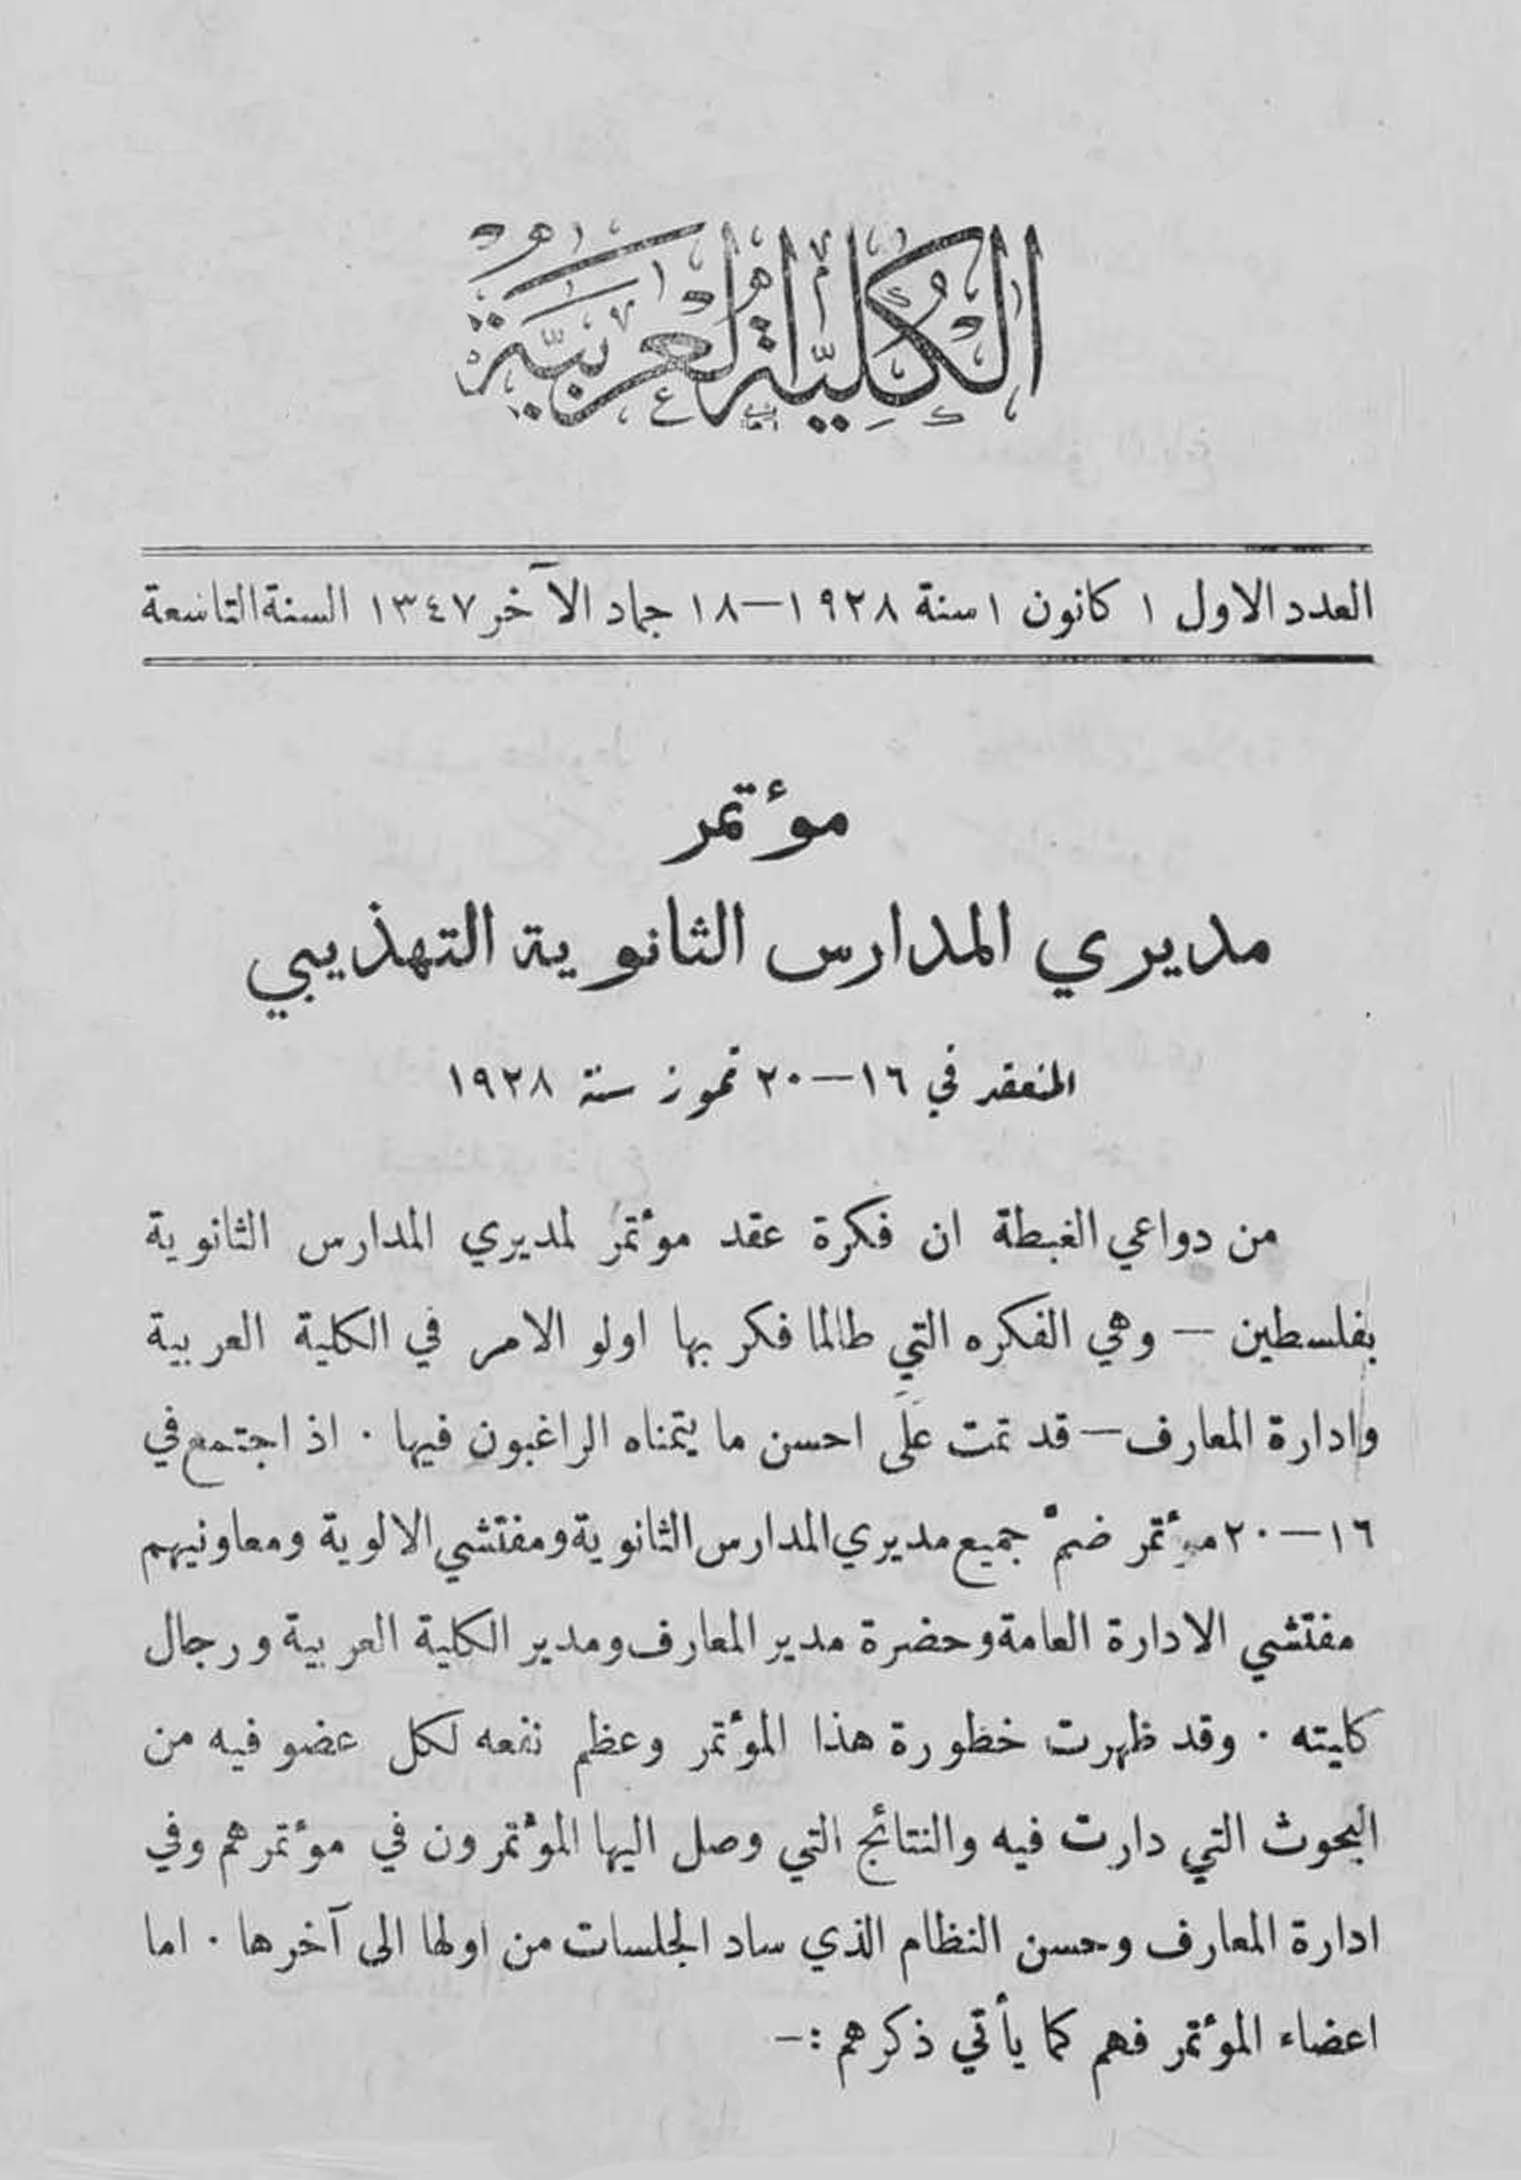 الكُليّة العربيّة
العدد الاول ١ كانون ١ سنة ١٩٢٨—١٨ جماد الآخر ١٣٤٧ السنة التاسعة
مؤتمر
مديري المدارس الثانوية التهذيبي
المنعقد في ١٦—٢٠ تموز سنة ١٩٢٨
من دواعي الغبطة ان فكرة عقد مؤتمر لمديري المدارس الثانوية
بفلسطين — وهي الفكره التي طالما فكر بها اولو الامر في الكلية العربية
وادارة المعارف — قد تمت عَلَى احسن ما يتمناه الراغبون فيها . اذ اجتمع في
١٦—٢٠ مؤتمر ضمّ جميع مديري المدارس الثانوية ومفتشي الالوية ومعاونيهم
مفتشي الادارة العامة وحضرة مدير المعارف ومدير الكلية العربية ورجال
كليته . وقد ظهرت خطورة هذا المؤتمر وعظم نفعه لكل عضو فيه من
البحوث التي دارت فيه والنتائج التي وصل اليها المؤتمرون في مؤتمرهم وفي
ادارة المعارف وحسن النظام الذي ساد الجلسات من اولها الى آخرها . اما
اعضاء المؤتمر فهم كما يأتي ذكرهم :—